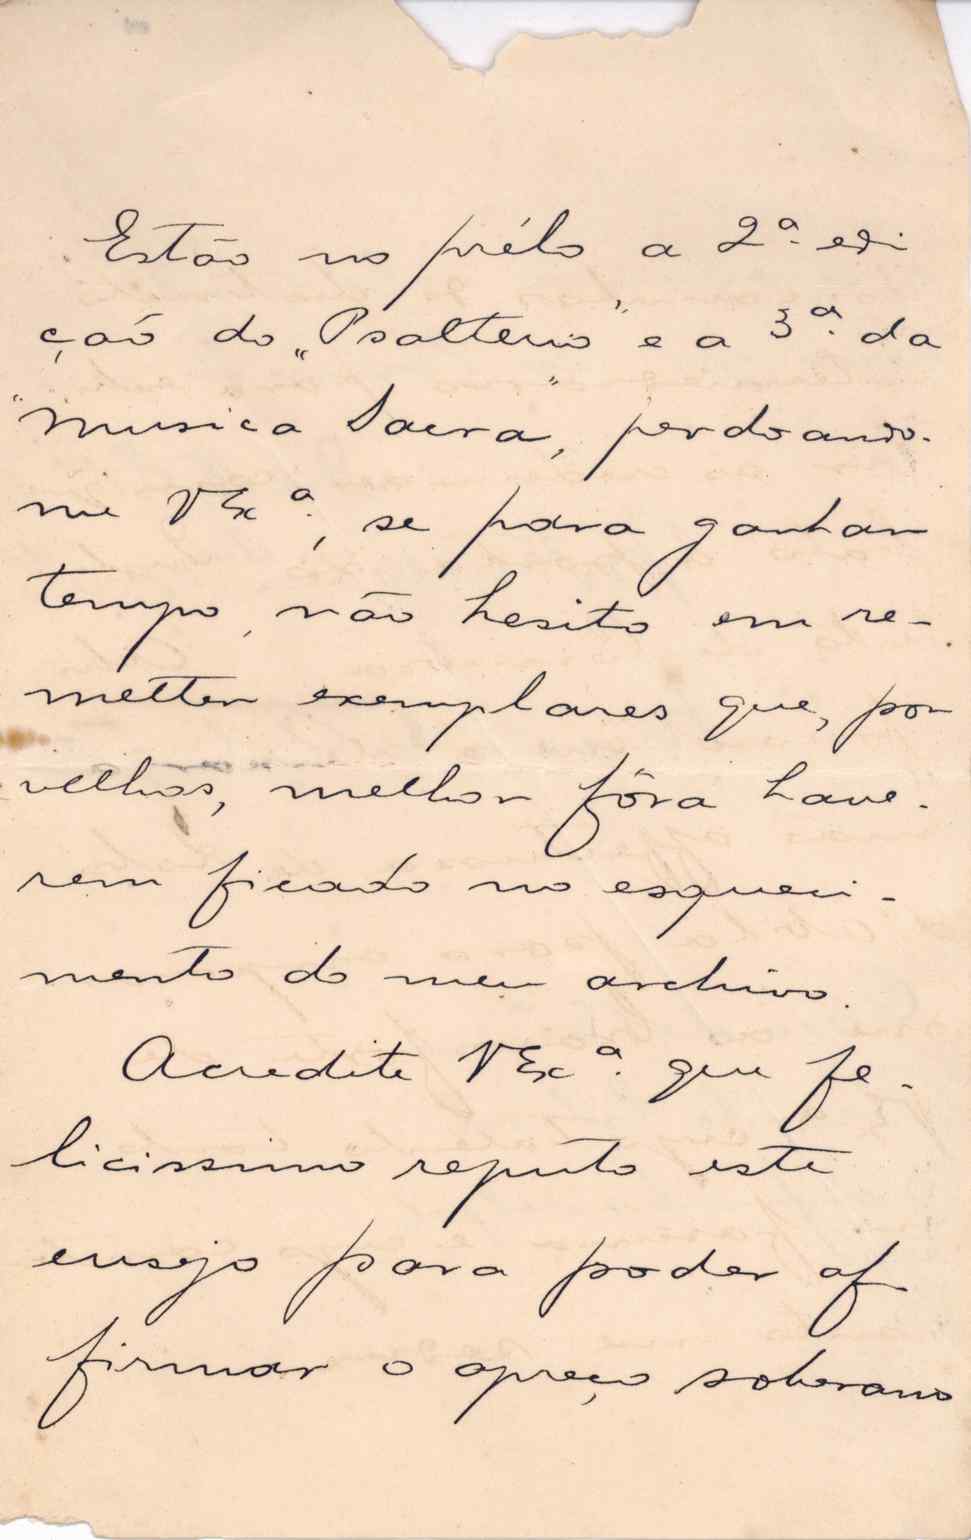 Estão no prélo a 2ª. edi
ção do „Psalterio” e a 3ª. da
"Musica Sacra”, perdoando-
me V Exª., se para ganhar
tempo, não hesito em re-
metter exemplares que, por
velhos, melhor fôra have-
rem ficado no esqueci-
mento do meu archivo.
Acredite V Exª. que fe-
licissimo reputo este
ensejo para poder af
firmar o apreço soberano